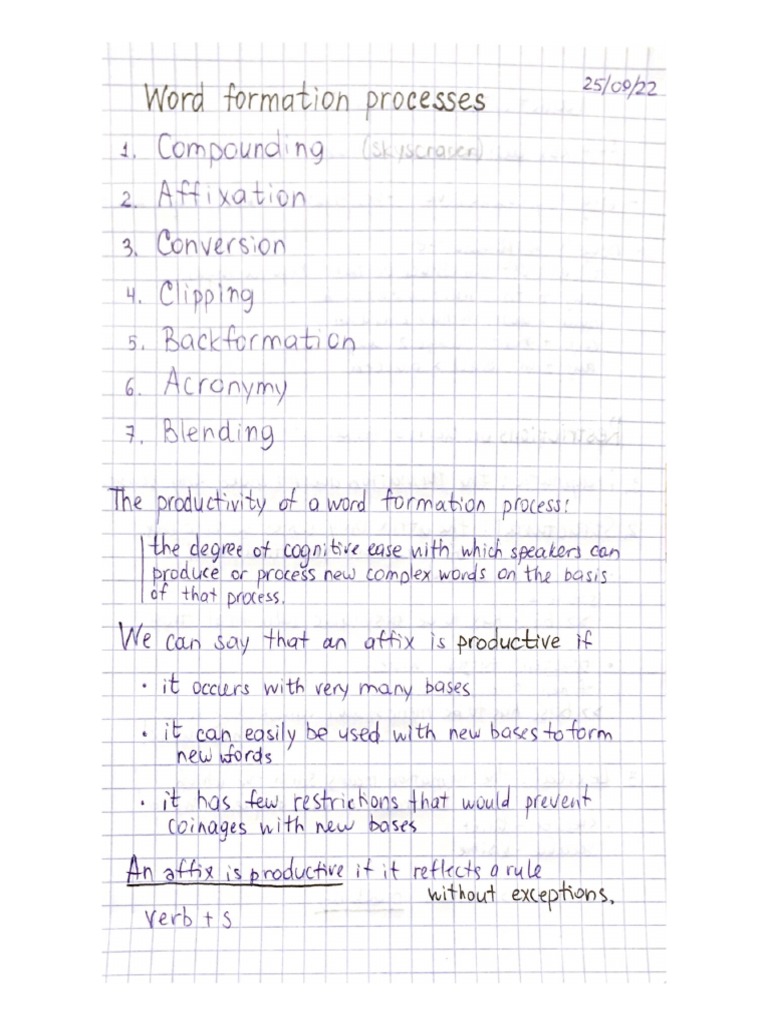 25/09/22
Word formation processes
1. Compounding (skyscraper)
2. Affixation
3. Conversion
4. Clipping
5. Backformation
6. Acronymy
7. Blending
The productivity of a word formation process:
the degree of cognitive ease with which speakers can
produce or process new complex words on the basis
of that process.
We can say that an affix is productive if
· it occurs with very many bases
· it can easily be used with new bases to form
new words
· it has few restrictions that would prevent
coinages with new bases
An affix is productive if it reflects a rule
without exceptions.
verb + s